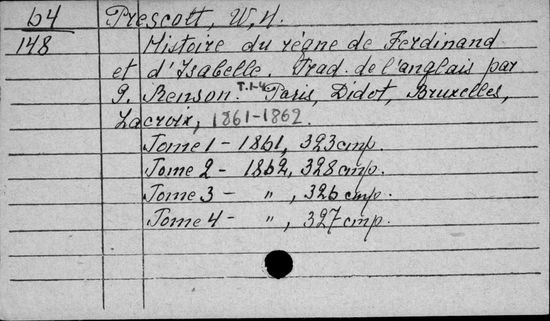 64 Prescott, W.H.
148 Histoire du règne de Ferdinand
et d'Isabelle. Trad. de l'anglais par
G. Renson. T.1-4 Paris, Didot, Bruxelles,
Lacroix, 1861-1862.
Tome 1 - 1861, 323 стр.
Tome 2 - 1862, 328 стр.
Tome 3 - ", 326 стр.
Tome 4 - ", 327 стр.